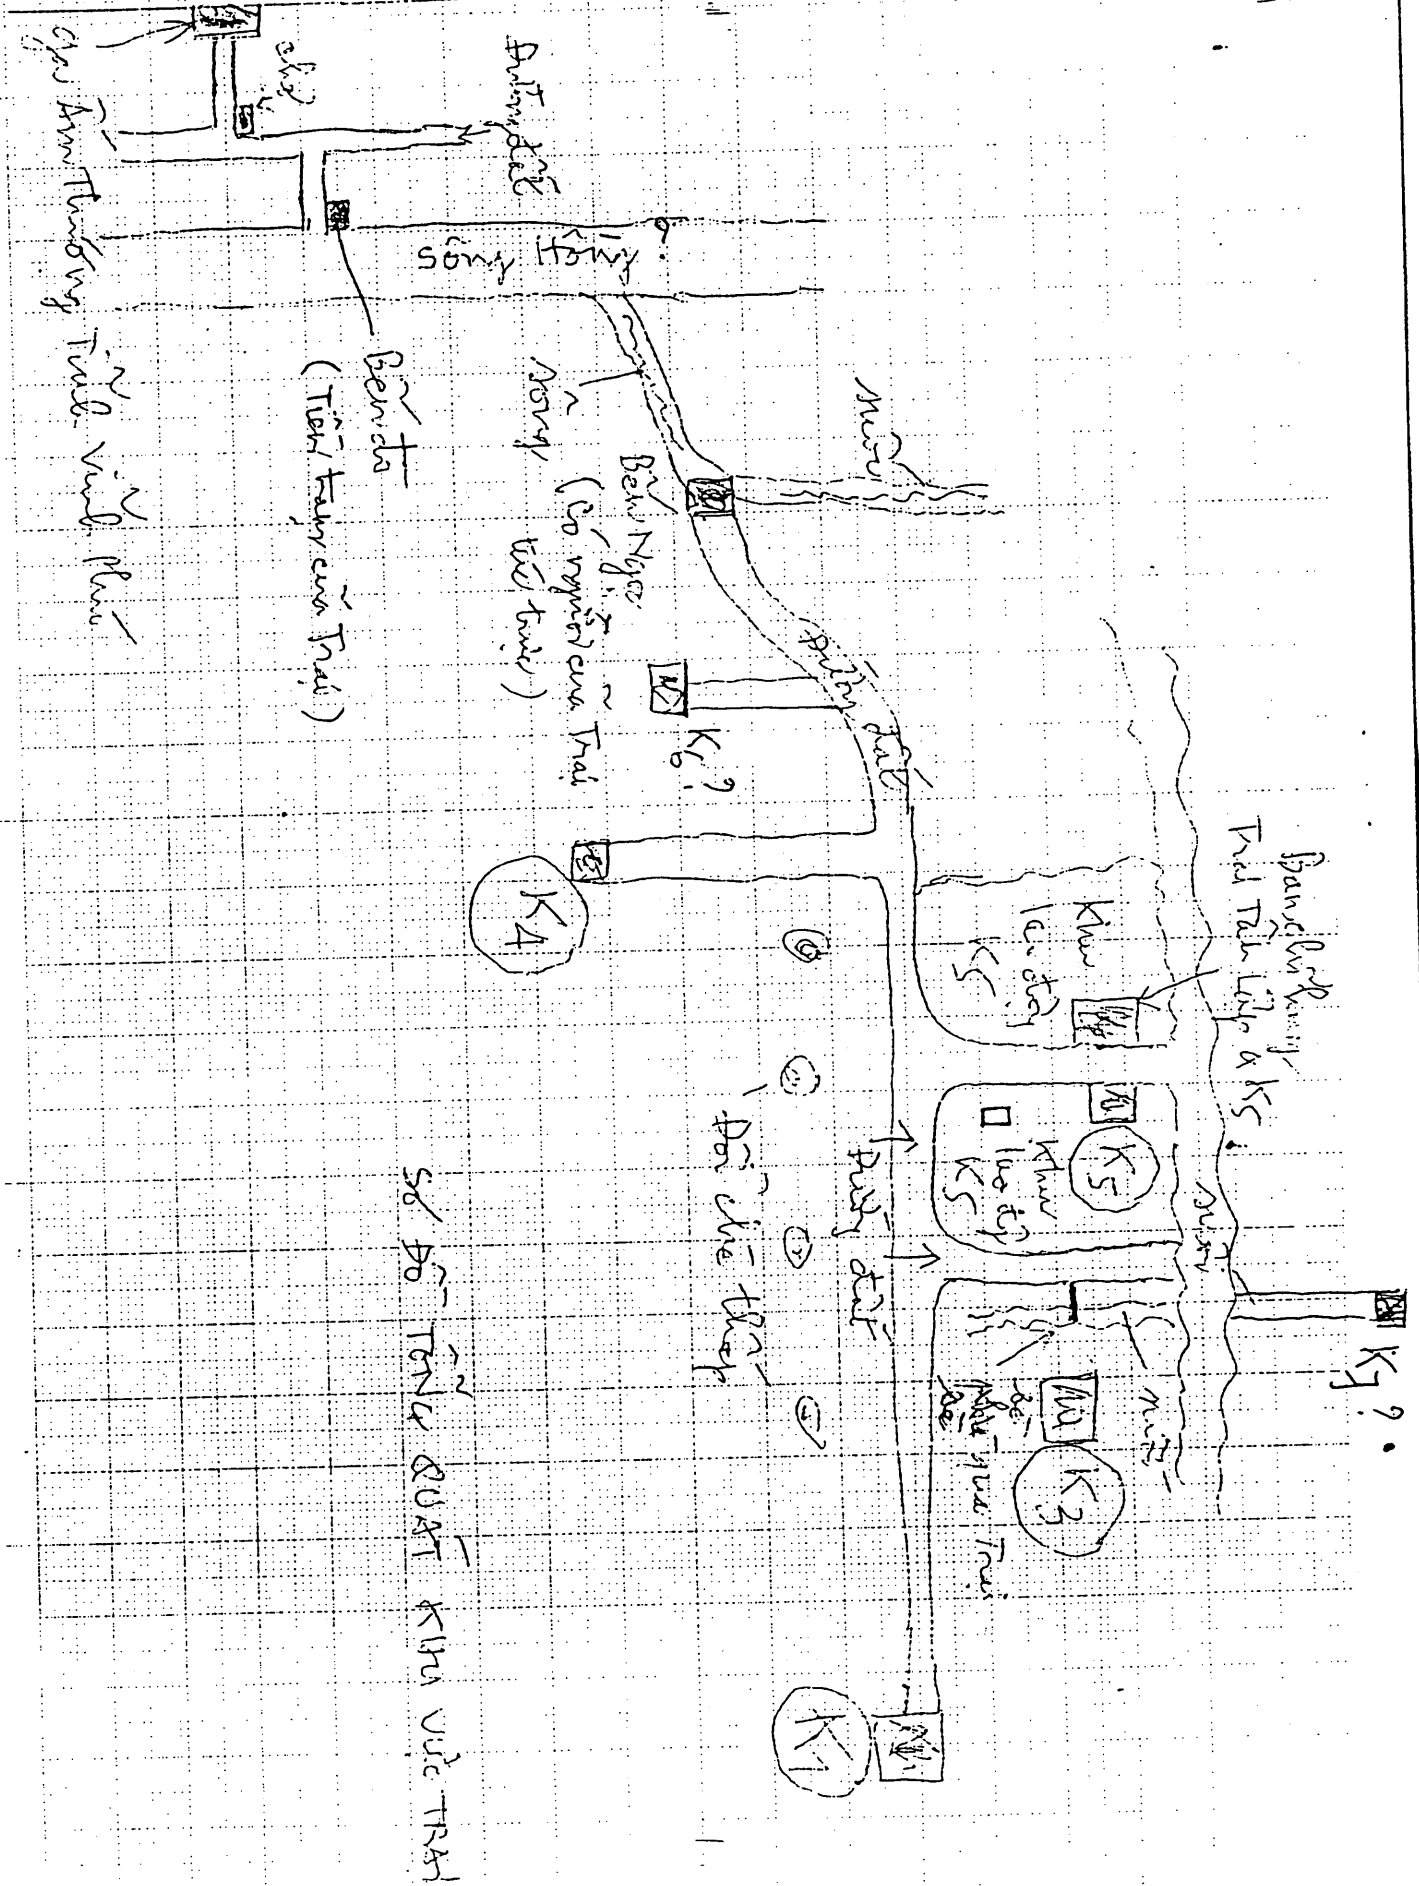 K7?
Ban chỉ huy
Trại Tân Lập & K5
suối
suối
Khu
lao động
K5
K5
Khu
lao động
K5
suối
K3
đê
Nhà
qua Trại
K1
Đường đất
Đường đất
Đồi chè thấp
K6?
K4
Bến Ngọc
(Có người của Trại
túc trực)
sông
Sông Hồng?
Đường đất
Bến đò
(Tiền trạm của Trại)
chợ
ga Ấm Thượng Tỉnh Vĩnh Phú
SƠ ĐỒ TỔNG QUÁT KHU VỰC TRẠI